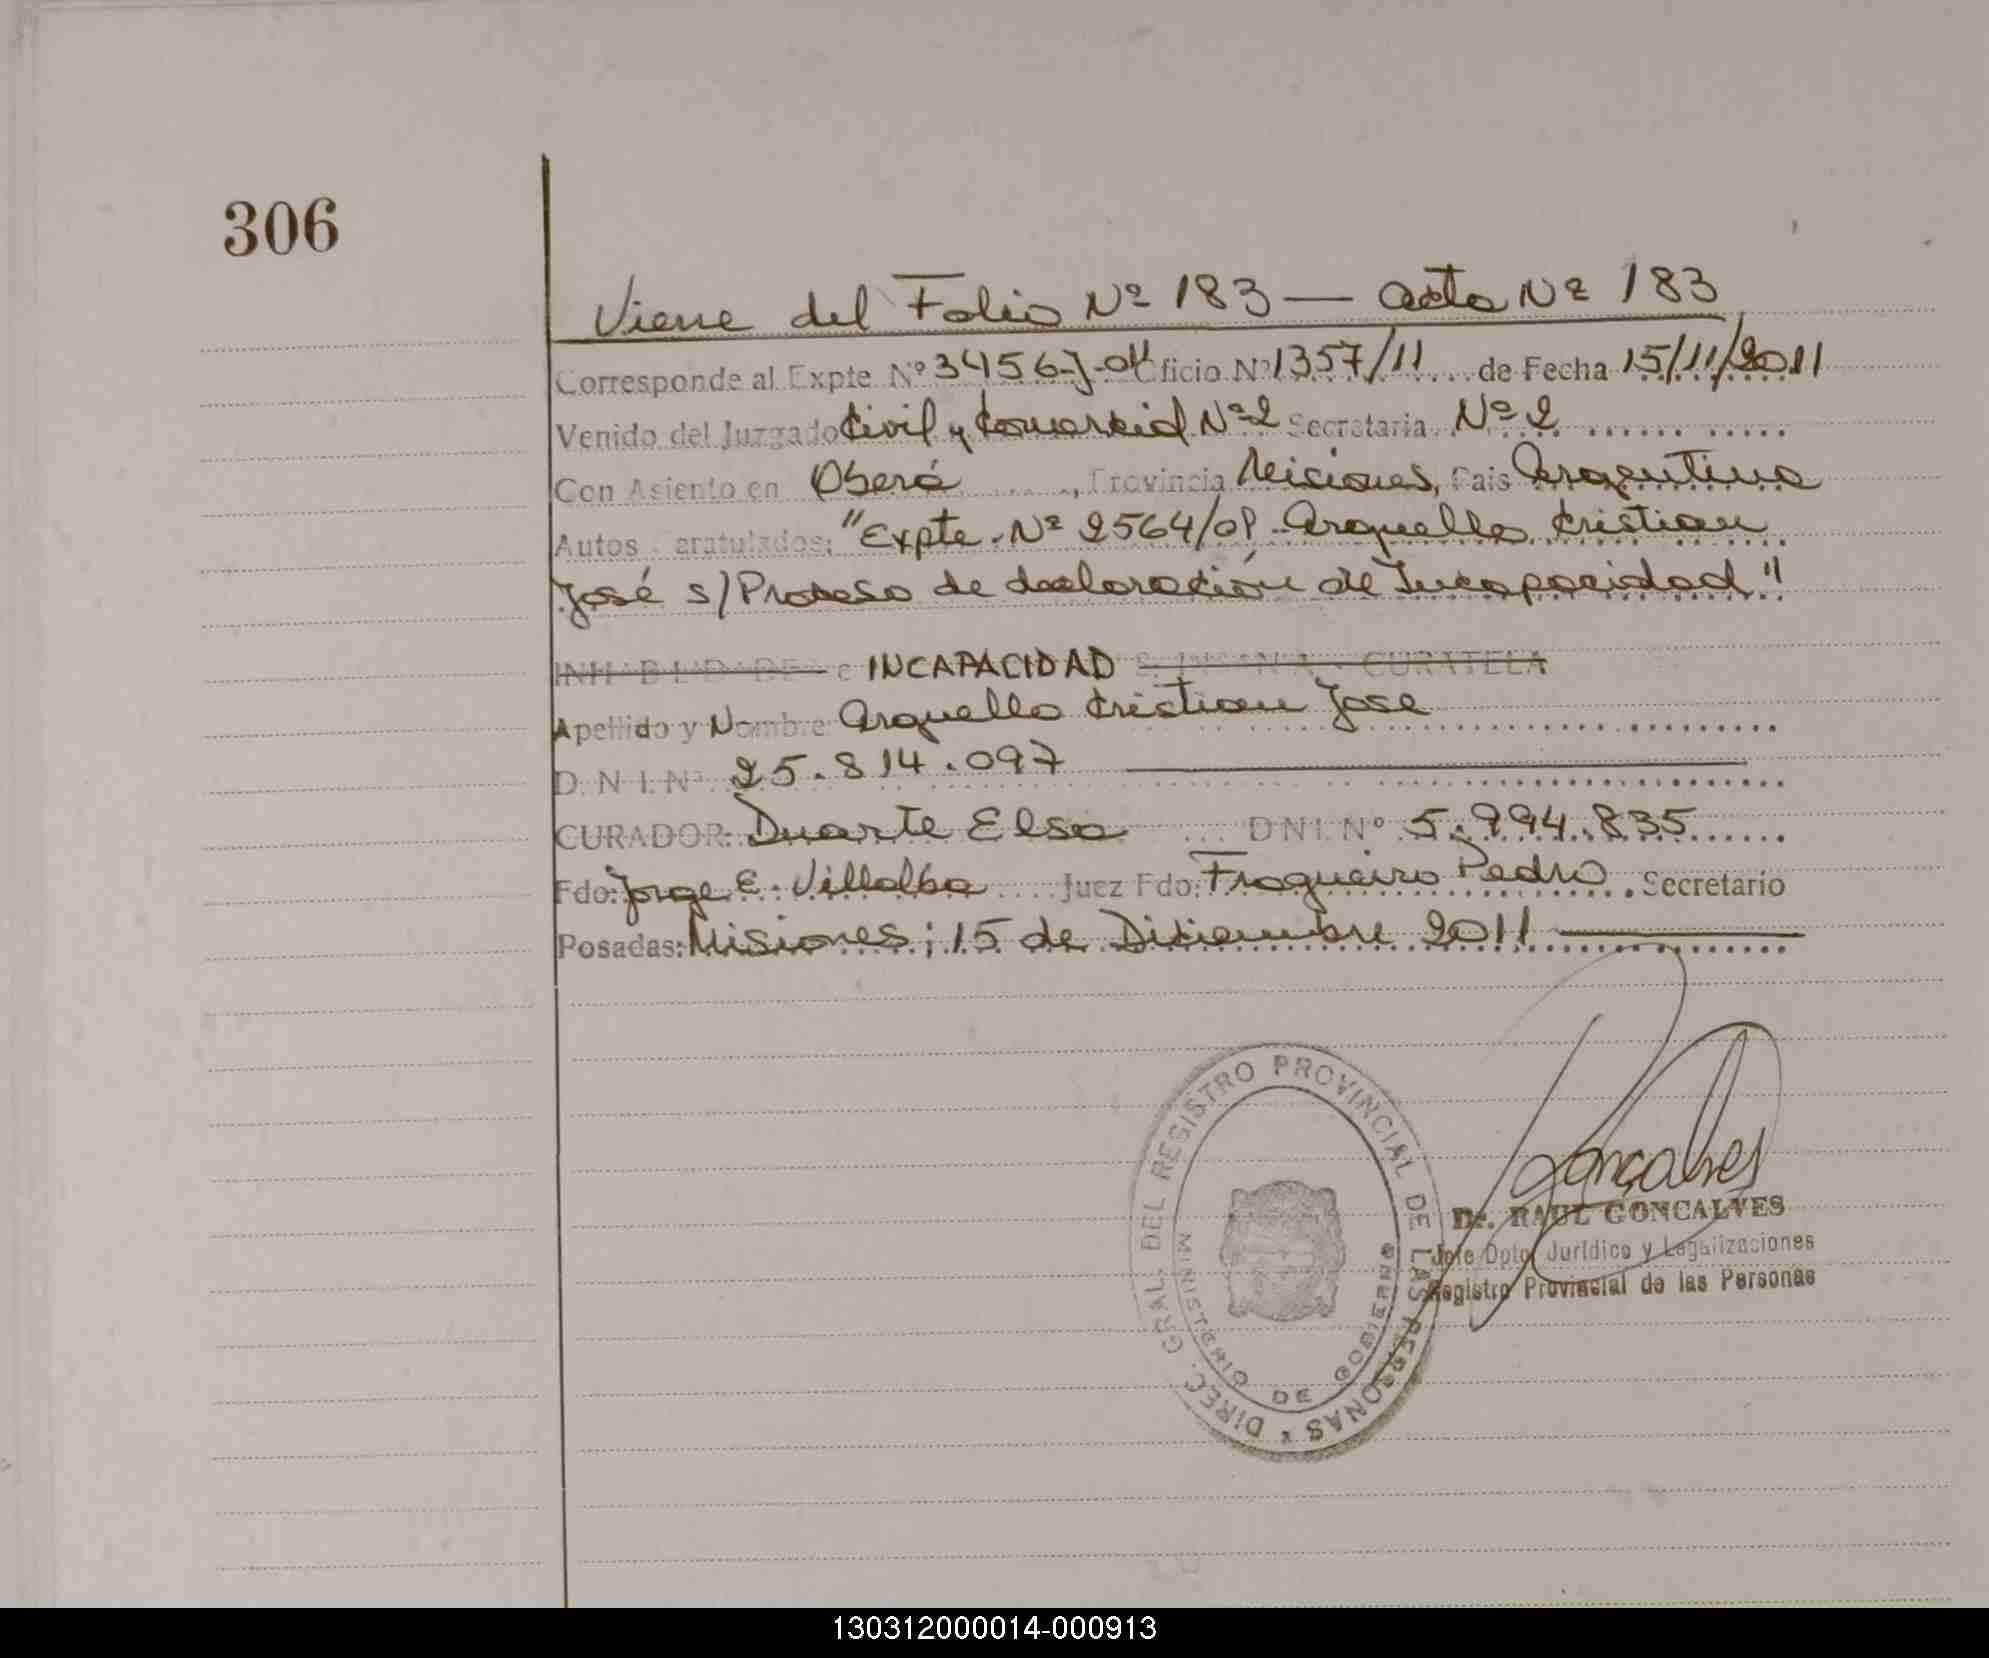 306
Viene del Folio Nº 183 — acta Nº 183
Corresponde al Expte Nº 3456-J-011 Oficio Nº 1357/11 de Fecha 15/11/2011
Venido del Juzgado Civil y Comercial Nº 2 Secretaria Nº 2
Con Asiento en Oberá, Provincia Misiones, Pais Argentina
Autos Caratulados: "Expte. Nº 2564/08 Arguello Cristian
José s/ Proceso de declaración de Incapacidad"
INHABILIDADES e INCAPACIDAD CURATELA
Apellido y Nombre Arguello Cristian Jose
D.N.I. Nº 25.814.097
CURADOR: Duarte Elsa DNI. Nº 5.994.835
Fdo: Jorge E. Villalba Juez Fdo: Fragueiro Pedro Secretario
Posadas: Misiones; 15 de Diciembre 2011
DIREC. GRAL. DEL REGISTRO PROVINCIAL DE LAS PERSONAS
MINISTERIO DE GOBIERNO
Goncalves
Dr. RAUL GONCALVES
Jefe Dpto Jurídico y Legalizaciones
Registro Provincial de las Personas
130312000014-000913